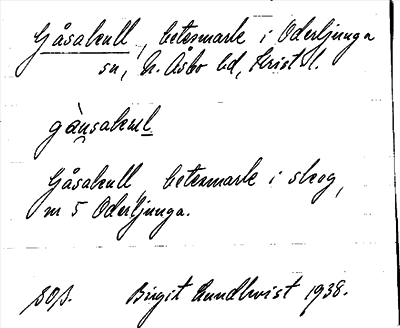 Gåsakull, betesmark i Oderljunga
sn, N. Åsbo hd, Krist. l.
gå̀nsakul
Gåsakull betesmark i skog,
nr 5 Oderljunga.
Birgit Lundkvist 1938.